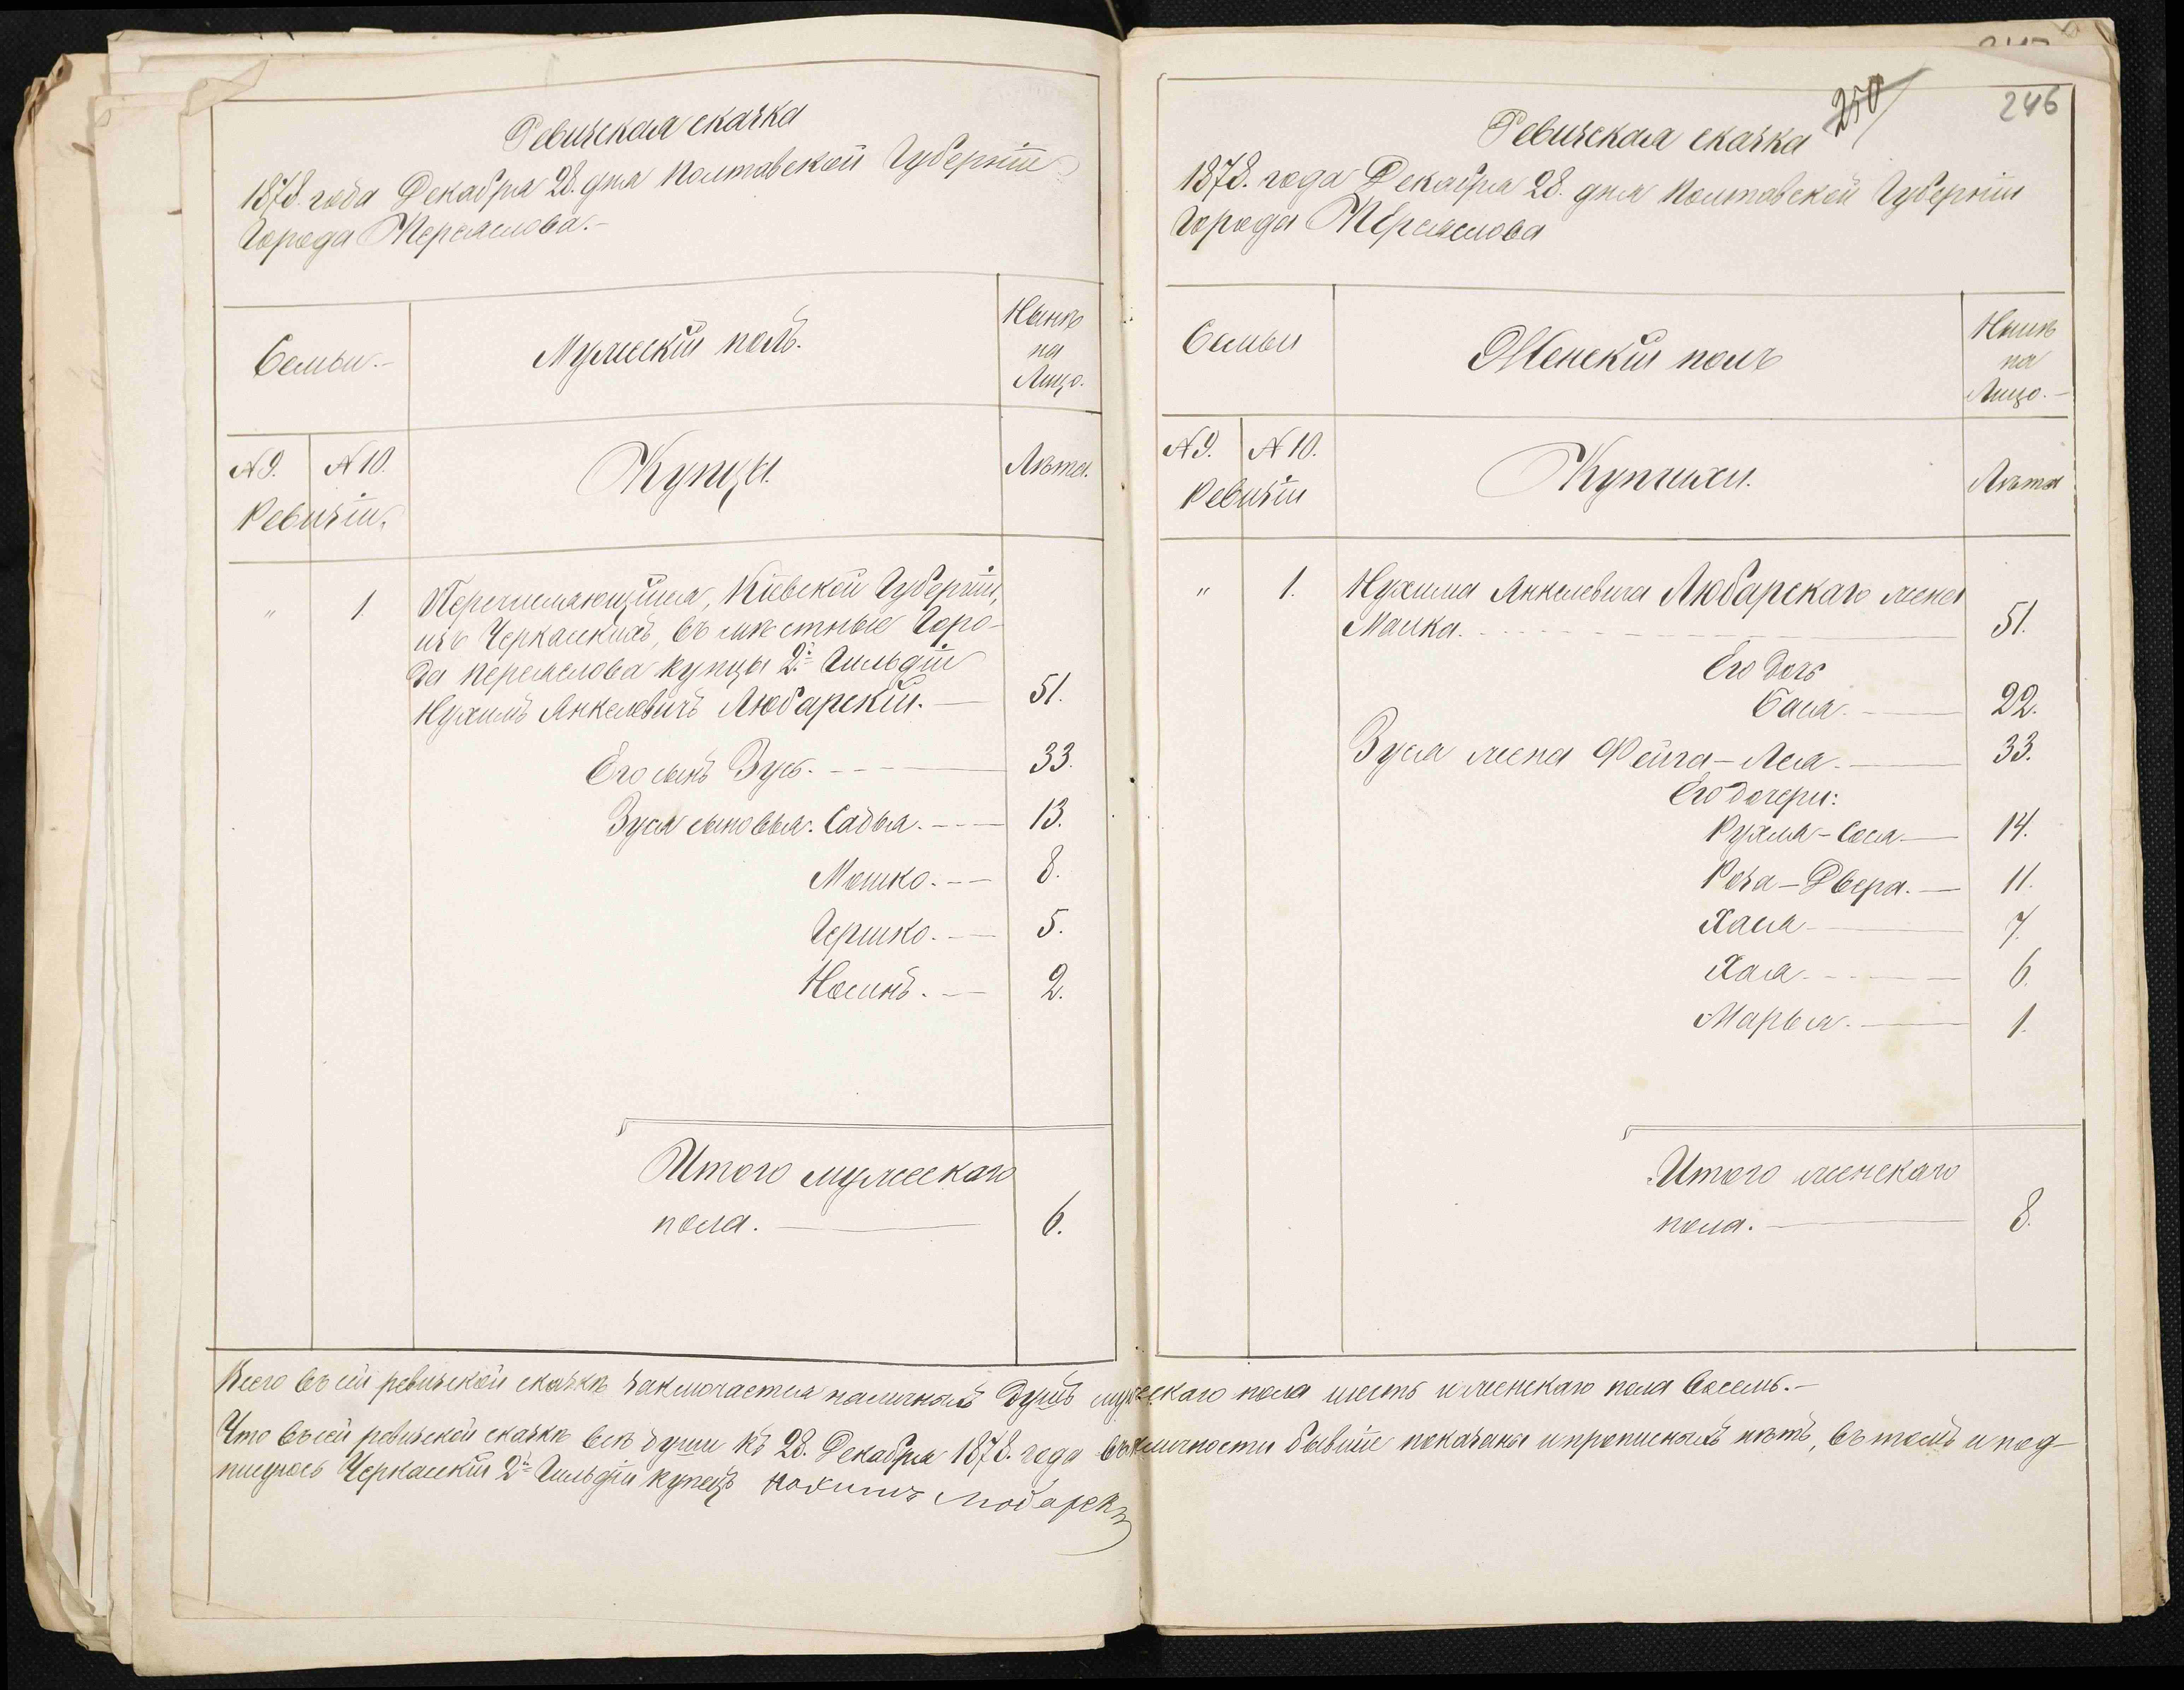 Ревизская сказка
1878. года Декабря 28. дня Полтавской Губерніи
Города Переяслова.-
Семьи.-
Мужескій полъ.
Нынѣ
на
Лицо.
№ 9. № 10.
Ревизіи.
Купцы.
Лѣта.
" 1 Перечисляющійся, Кіевской Губерніи,
изъ Черкасскихъ, въ мѣстные Горо-
да Переяслова купцы 2й Гильдіи
Нухимъ Янкелевичъ Любарскій. — 51.
Его сынъ Зусь. — 33.
Зуся сыновья: Савья. — 13.
Мошко. — 8.
Гершко. — 5.
Носинъ. — 2.
Итого мужескаго
пола. — 6.
250 246
Ревизская сказка
1878. года Декабря 28. дня Полтавской Губерніи
Города Переяслова
Семьи
Женскій полъ
Нынѣ
на
Лицо.-
№ 9. № 10.
Ревизіи
Купчихи.
Лѣта
" 1. Нухима Янкелевича Любарскаго жена
Малка. — 51.
Его дочь
Бася. — 22.
Зуся жена Фейга-Лея. — 33.
Его дочери:
Рухля-Сося — 14.
Роза-Двера. — 11.
Хася — 7.
Хая. — 6.
Марья. — 1.
Итого женскаго
пола. — 8.
Всего въ сей ревизской сказкѣ заключается наличныхъ душъ мужескаго пола шесть и женскаго пола восемь.-
Что въ сей ревизской сказкѣ всѣ души къ 28. Декабря 1878. года въ наличности бывшіе показаны и прописныхъ нѣтъ, въ томъ и под-
писуюсь Черкасскій 2й Гильдіи купецъ Нохимъ Любарскій